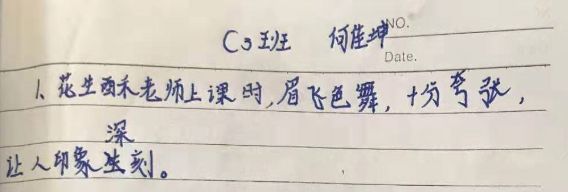 C3班 何佳坤
NO.
Date.
1、花生酥禾老师上课时,眉飞色舞,十分夸张,
深
让人印象生刻。